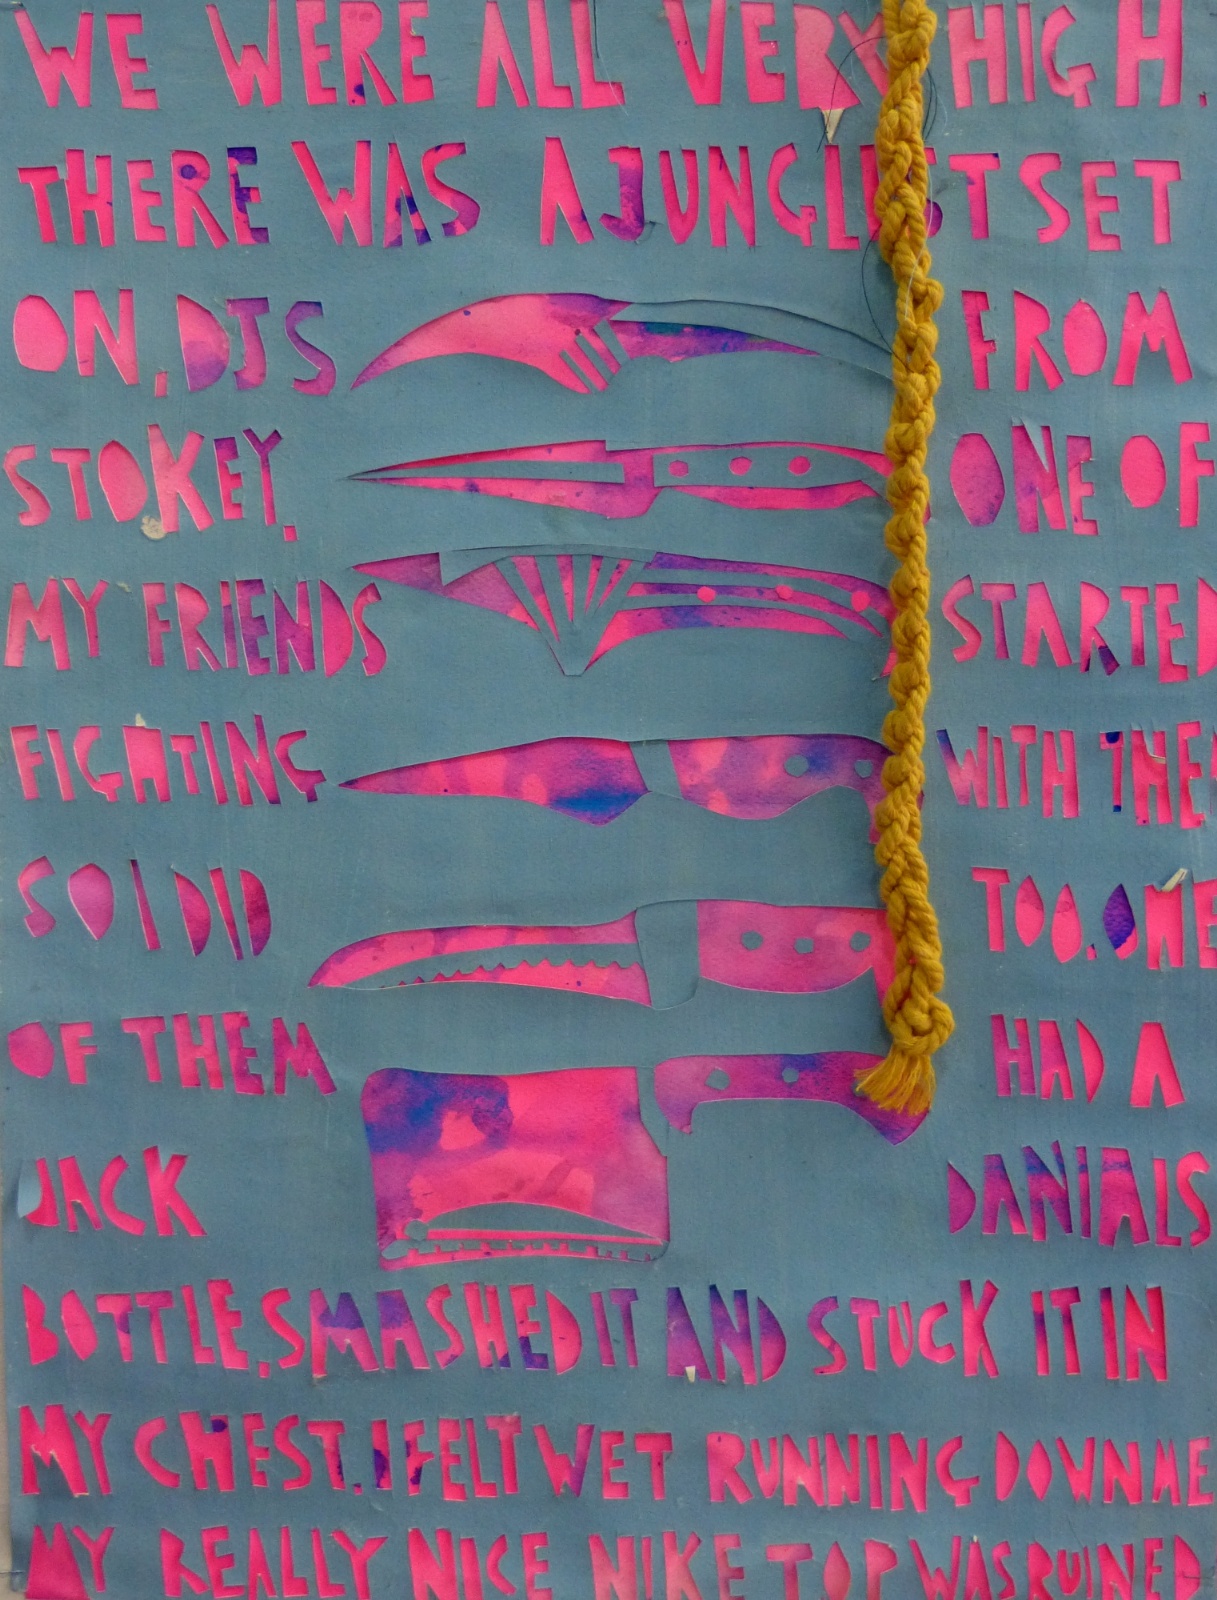 WE WERE ALL VERY HIGH.
THERE WAS A JUNGLIST SET
ON, DJS FROM
STOKEY. ONE OF
MY FRIENDS STARTED
FIGHTING WITH THEM
SO I DID TOO. ONE
OF THEM HAD A
JACK DANIALS
BOTTLE, SMASHED IT AND STUCK IT IN
MY CHEST. I FELT WET RUNNING DOWN ME
MY REALLY NICE NIKE TOP WAS RUINED